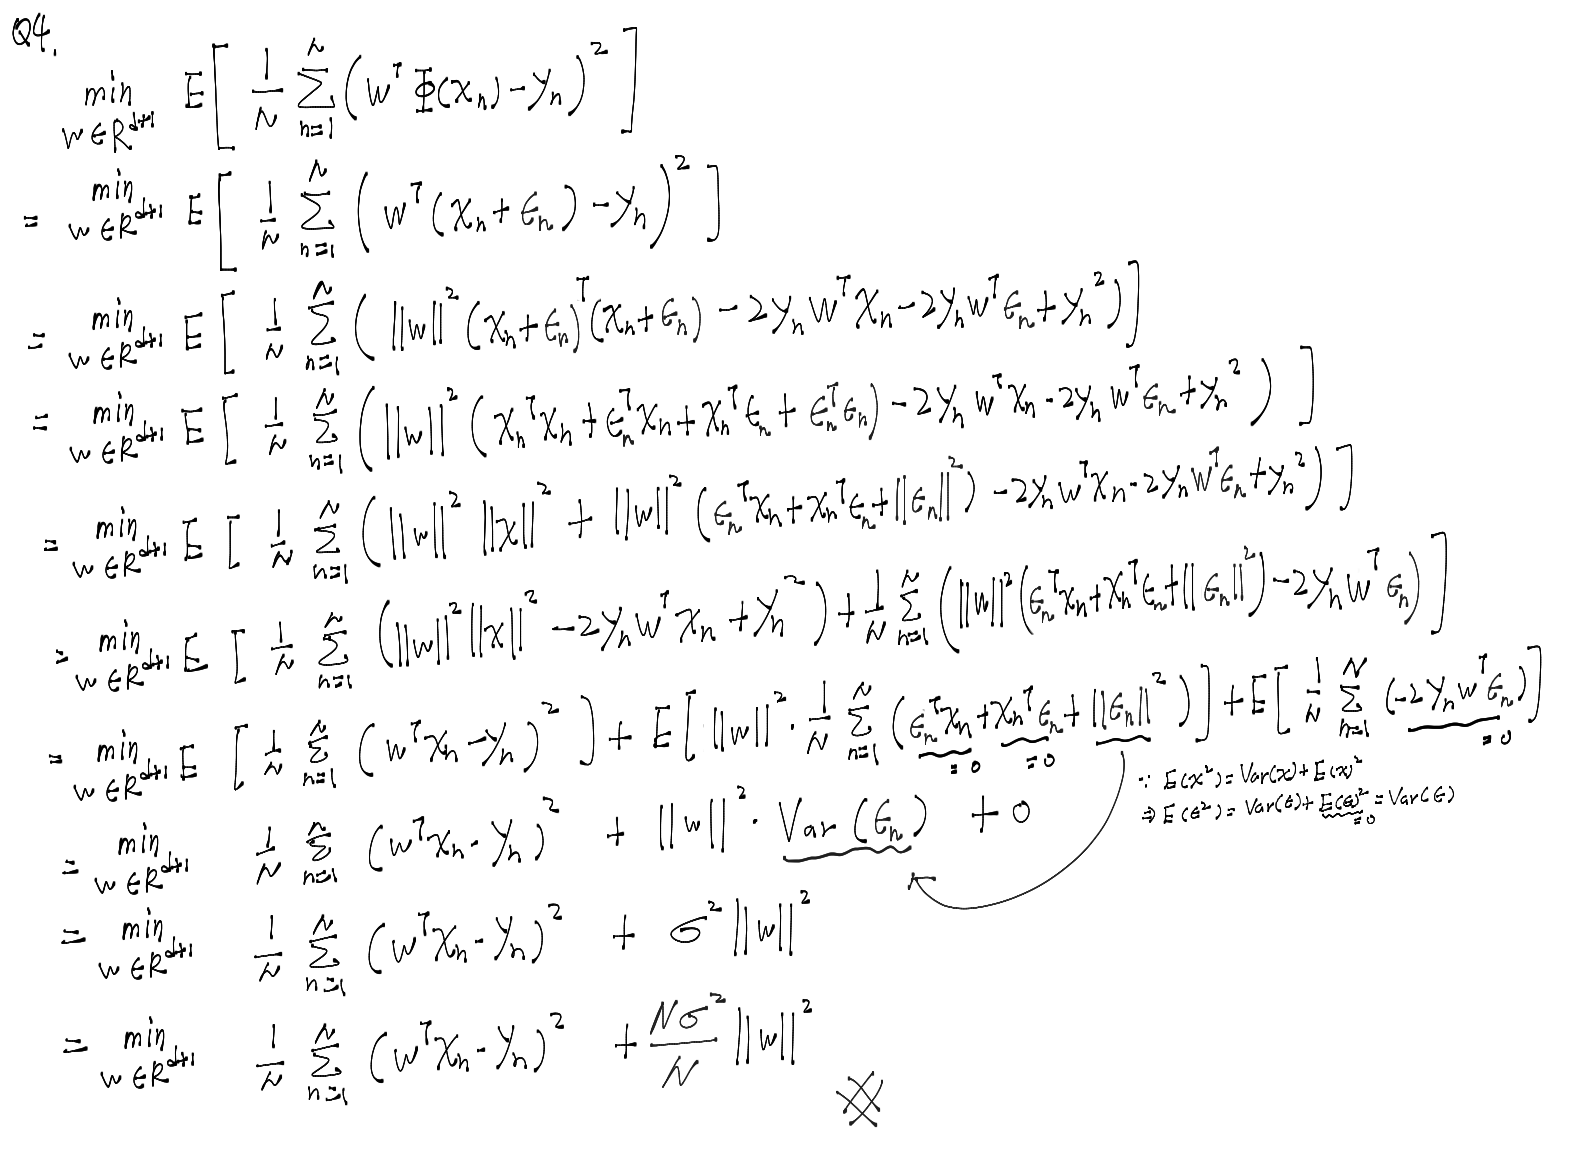 Q4.
min_{w∈R^{d+1}} E[ 1/N Σ_{n=1}^{N} (w^T Φ(x_n) - y_n)^2 ]
= min_{w∈R^{d+1}} E[ 1/N Σ_{n=1}^{N} (w^T (x_n + ϵ_n) - y_n)^2 ]
= min_{w∈R^{d+1}} E[ 1/N Σ_{n=1}^{N} ( ||w||^2 (x_n + ϵ_n)^T (x_n + ϵ_n) - 2y_n w^T x_n - 2y_n w^T ϵ_n + y_n^2 ) ]
= min_{w∈R^{d+1}} E[ 1/N Σ_{n=1}^{N} ( ||w||^2 ( x_n^T x_n + ϵ_n^T x_n + x_n^T ϵ_n + ϵ_n^T ϵ_n ) - 2y_n w^T x_n - 2y_n w^T ϵ_n + y_n^2 ) ]
= min_{w∈R^{d+1}} E[ 1/N Σ_{n=1}^{N} ( ||w||^2 ||x||^2 + ||w||^2 ( ϵ_n^T x_n + x_n^T ϵ_n + ||ϵ_n||^2 ) - 2y_n w^T x_n - 2y_n w^T ϵ_n + y_n^2 ) ]
= min_{w∈R^{d+1}} E[ 1/N Σ_{n=1}^{N} ( ||w||^2 ||x||^2 - 2y_n w^T x_n + y_n^2 ) + 1/N Σ_{n=1}^{N} ( ||w||^2 ( ϵ_n^T x_n + x_n^T ϵ_n + ||ϵ_n||^2 ) - 2y_n w^T ϵ_n ) ]
= min_{w∈R^{d+1}} E[ 1/N Σ_{n=1}^{N} (w^T x_n - y_n)^2 ] + E[ ||w||^2 · 1/N Σ_{n=1}^{N} ( ϵ_n^T x_n + x_n^T ϵ_n + ||ϵ_n||^2 ) ] + E[ 1/N Σ_{n=1}^{N} (-2y_n w^T ϵ_n) ]
=0 =0 =0
∵ E(x^2) = Var(x) + E(x)^2
⇒ E(ϵ^2) = Var(ϵ) + E(ϵ)^2 = Var(ϵ)
=0
= min_{w∈R^{d+1}} 1/N Σ_{n=1}^{N} (w^T x_n - y_n)^2 + ||w||^2 · Var(ϵ_n) + 0
= min_{w∈R^{d+1}} 1/N Σ_{n=1}^{N} (w^T x_n - y_n)^2 + σ^2 ||w||^2
= min_{w∈R^{d+1}} 1/N Σ_{n=1}^{N} (w^T x_n - y_n)^2 + Nσ^2/N ||w||^2